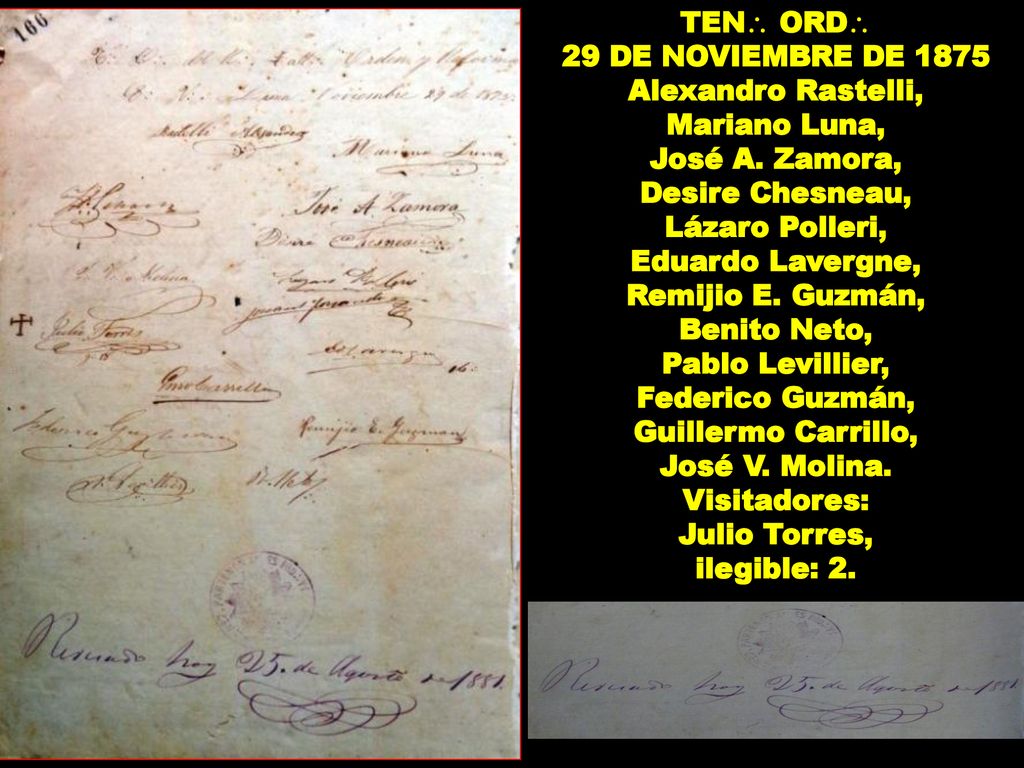 166
Orden y Reforma
Noviembre 29 de 1875
Rastelli Alexandro
Mariano Luna
José A. Zamora
Desire Chesneau
J. V. Molina
Julio Torres
Gmo Carrillo
Federico Guzman
Remijio E. Guzman
B. Neto
Revisado hoy 25. de Agosto de 1881.
TEN∴ ORD∴
29 DE NOVIEMBRE DE 1875
Alexandro Rastelli,
Mariano Luna,
José A. Zamora,
Desire Chesneau,
Lázaro Polleri,
Eduardo Lavergne,
Remijio E. Guzmán,
Benito Neto,
Pablo Levillier,
Federico Guzmán,
Guillermo Carrillo,
José V. Molina.
Visitadores:
Julio Torres,
ilegible: 2.
Revisado hoy 25. de Agosto de 1881